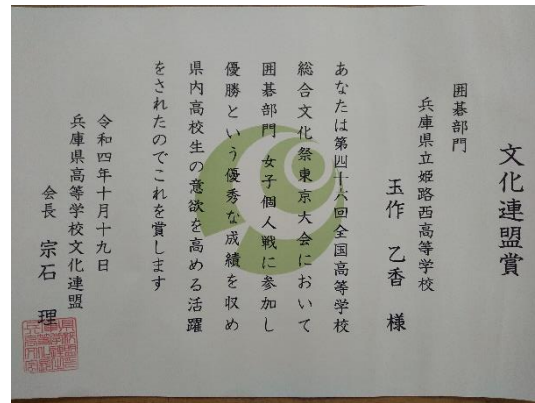 文化連盟賞
囲碁部門
兵庫県立姫路西高等学校
玉作 乙香 様
あなたは第四十六回全国高等学校
総合文化祭東京大会において
囲碁部門 女子個人戦に参加し
優勝という優秀な成績を収め
県内高校生の意欲を高める活躍
をされたのでこれを賞します
令和四年十月十九日
兵庫県高等学校文化連盟
会長 宗石 理